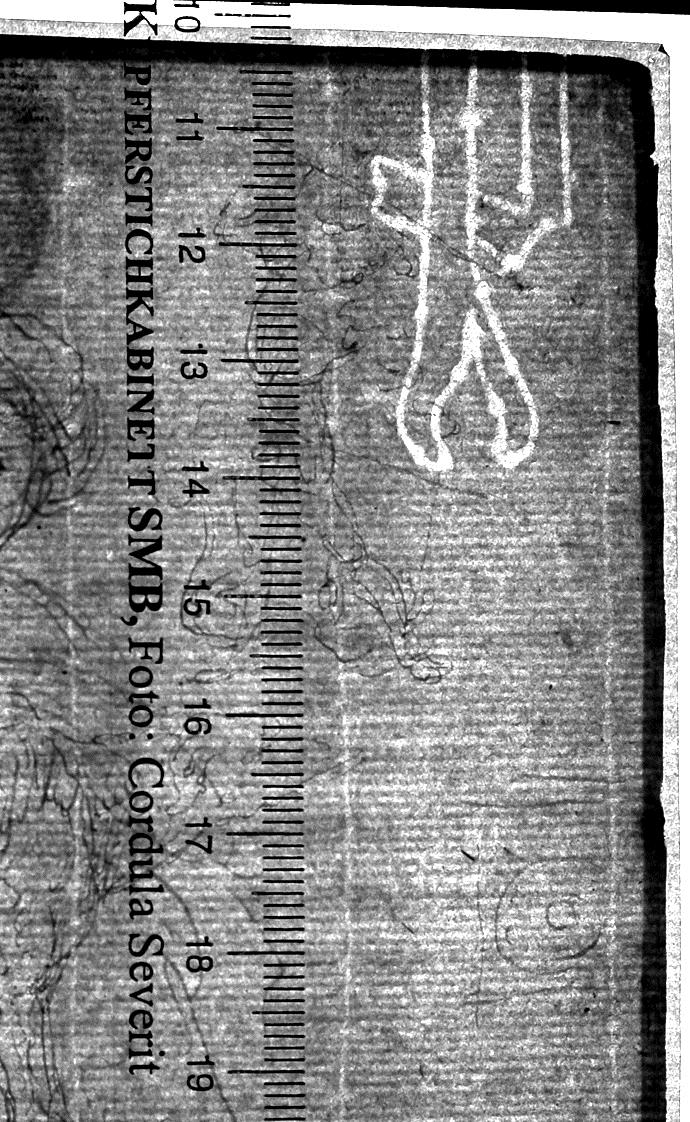 K PFERSTICHKABINETT SMB, Foto: Cordula Severit
10
11
12
13
14
15
16
17
18
19